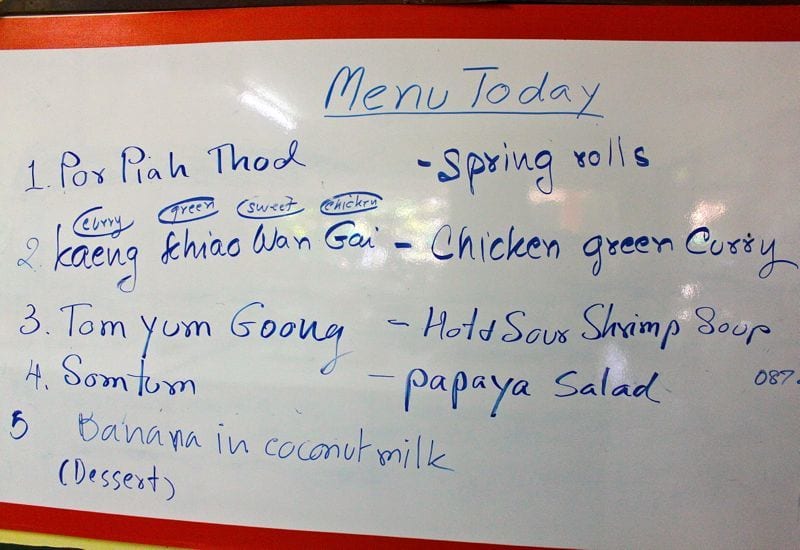 Menu Today
1. Por Piah Thod - Spring rolls
curry green sweet chicken
2. Kaeng Khiao Wan Gai - Chicken green Curry
3. Tom yum Goong - Hot & Sour Shrimp Soup
4. Somtum - papaya Salad 087
5 Banana in coconut milk
(Dessert)